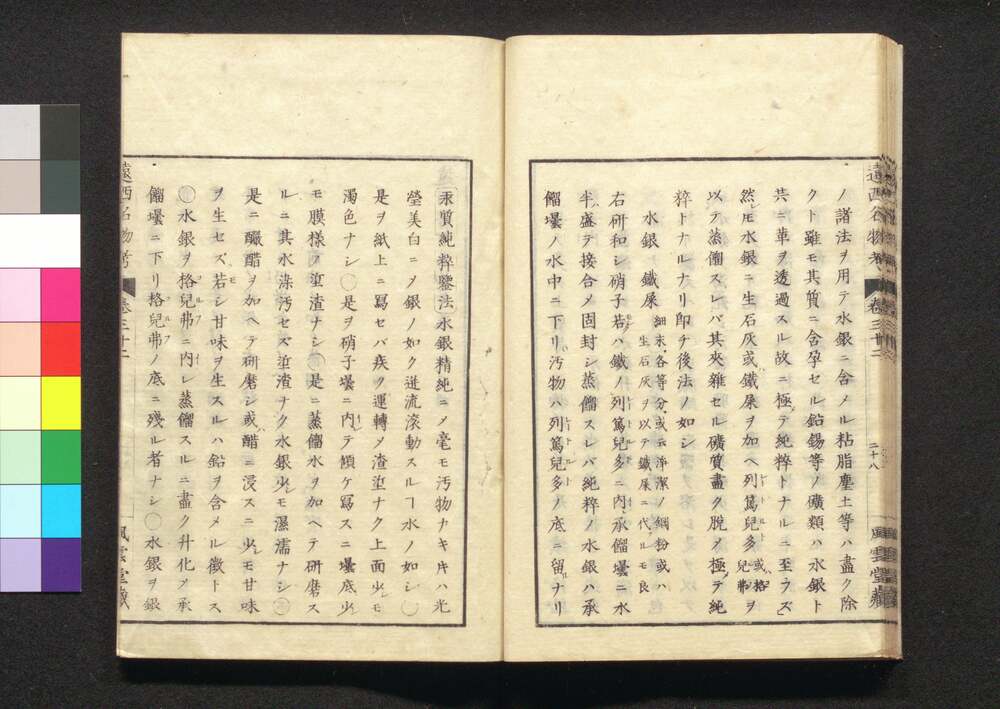 ノ諸法ヲ用テ水銀ニ含メル粘脂塵土等ハ盡ク除
クト雖モ其質ニ含孕セル鉛錫等ノ礦類ハ水銀ト
共ニ革ヲ透過スル故ニ極テ純粹トナルニ至ラズ
然𪜈水銀ニ生石灰或鐵屎ヲ加ヘ列篤兒多或格兒弗ヲ
以テ蒸餾スレバ其夾雜セル礦質盡ク脱メ極テ純
粹トナルナリ即チ後法ノ如シ
水銀 鐵屎 細末各等分或云淨潔ノ鋼粉或ハ生石灰ヲ以テ鐵屎ニ代ルモ良
右研和シ硝子若ハ鐵ノ列篤兒多ニ内承餾壜ニ水
半盛テ接合メ固封シ蒸餾スレバ純粹ノ水銀ハ承
餾壜ノ水中ニ下リ汚物ハ列篤兒多ノ底ニ留ナリ
遠西名物考 卷三十二 二十八 風雲堂藏
汞質純粹鑒法 水銀精純ニメ毫モ汚物ナキキハ光
瑩美白ニメ銀ノ如ク迸流滾動スルヿ水ノ如シ〇
是ヲ紙上ニ寫セバ疾ク運轉メ渣埿ナク上面少モ
濁色ナシ〇是ヲ硝子壜ニ内テ傾ケ寫スニ壜底少
モ膜樣ノ埿渣ナシ〇是ニ蒸餾水ヲ加ヘテ研磨ス
ルニ其水染汚セズ埿渣ナク水銀少モ濕濡ナシ〇
是ニ釅醋ヲ加ヘテ研磨シ或醋ニ浸スニ少モ甘味
ヲ生セズ若シ甘味ヲ生スルハ鉛ヲ含メル徴トス
〇水銀ヲ格兒弗ニ内レ蒸餾スルニ盡ク升化メ承
餾壜ニ下リ格兒弗ノ底ニ殘ル者ナシ〇水銀ヲ銀
遠西名物考 卷三十二 風雲堂藏